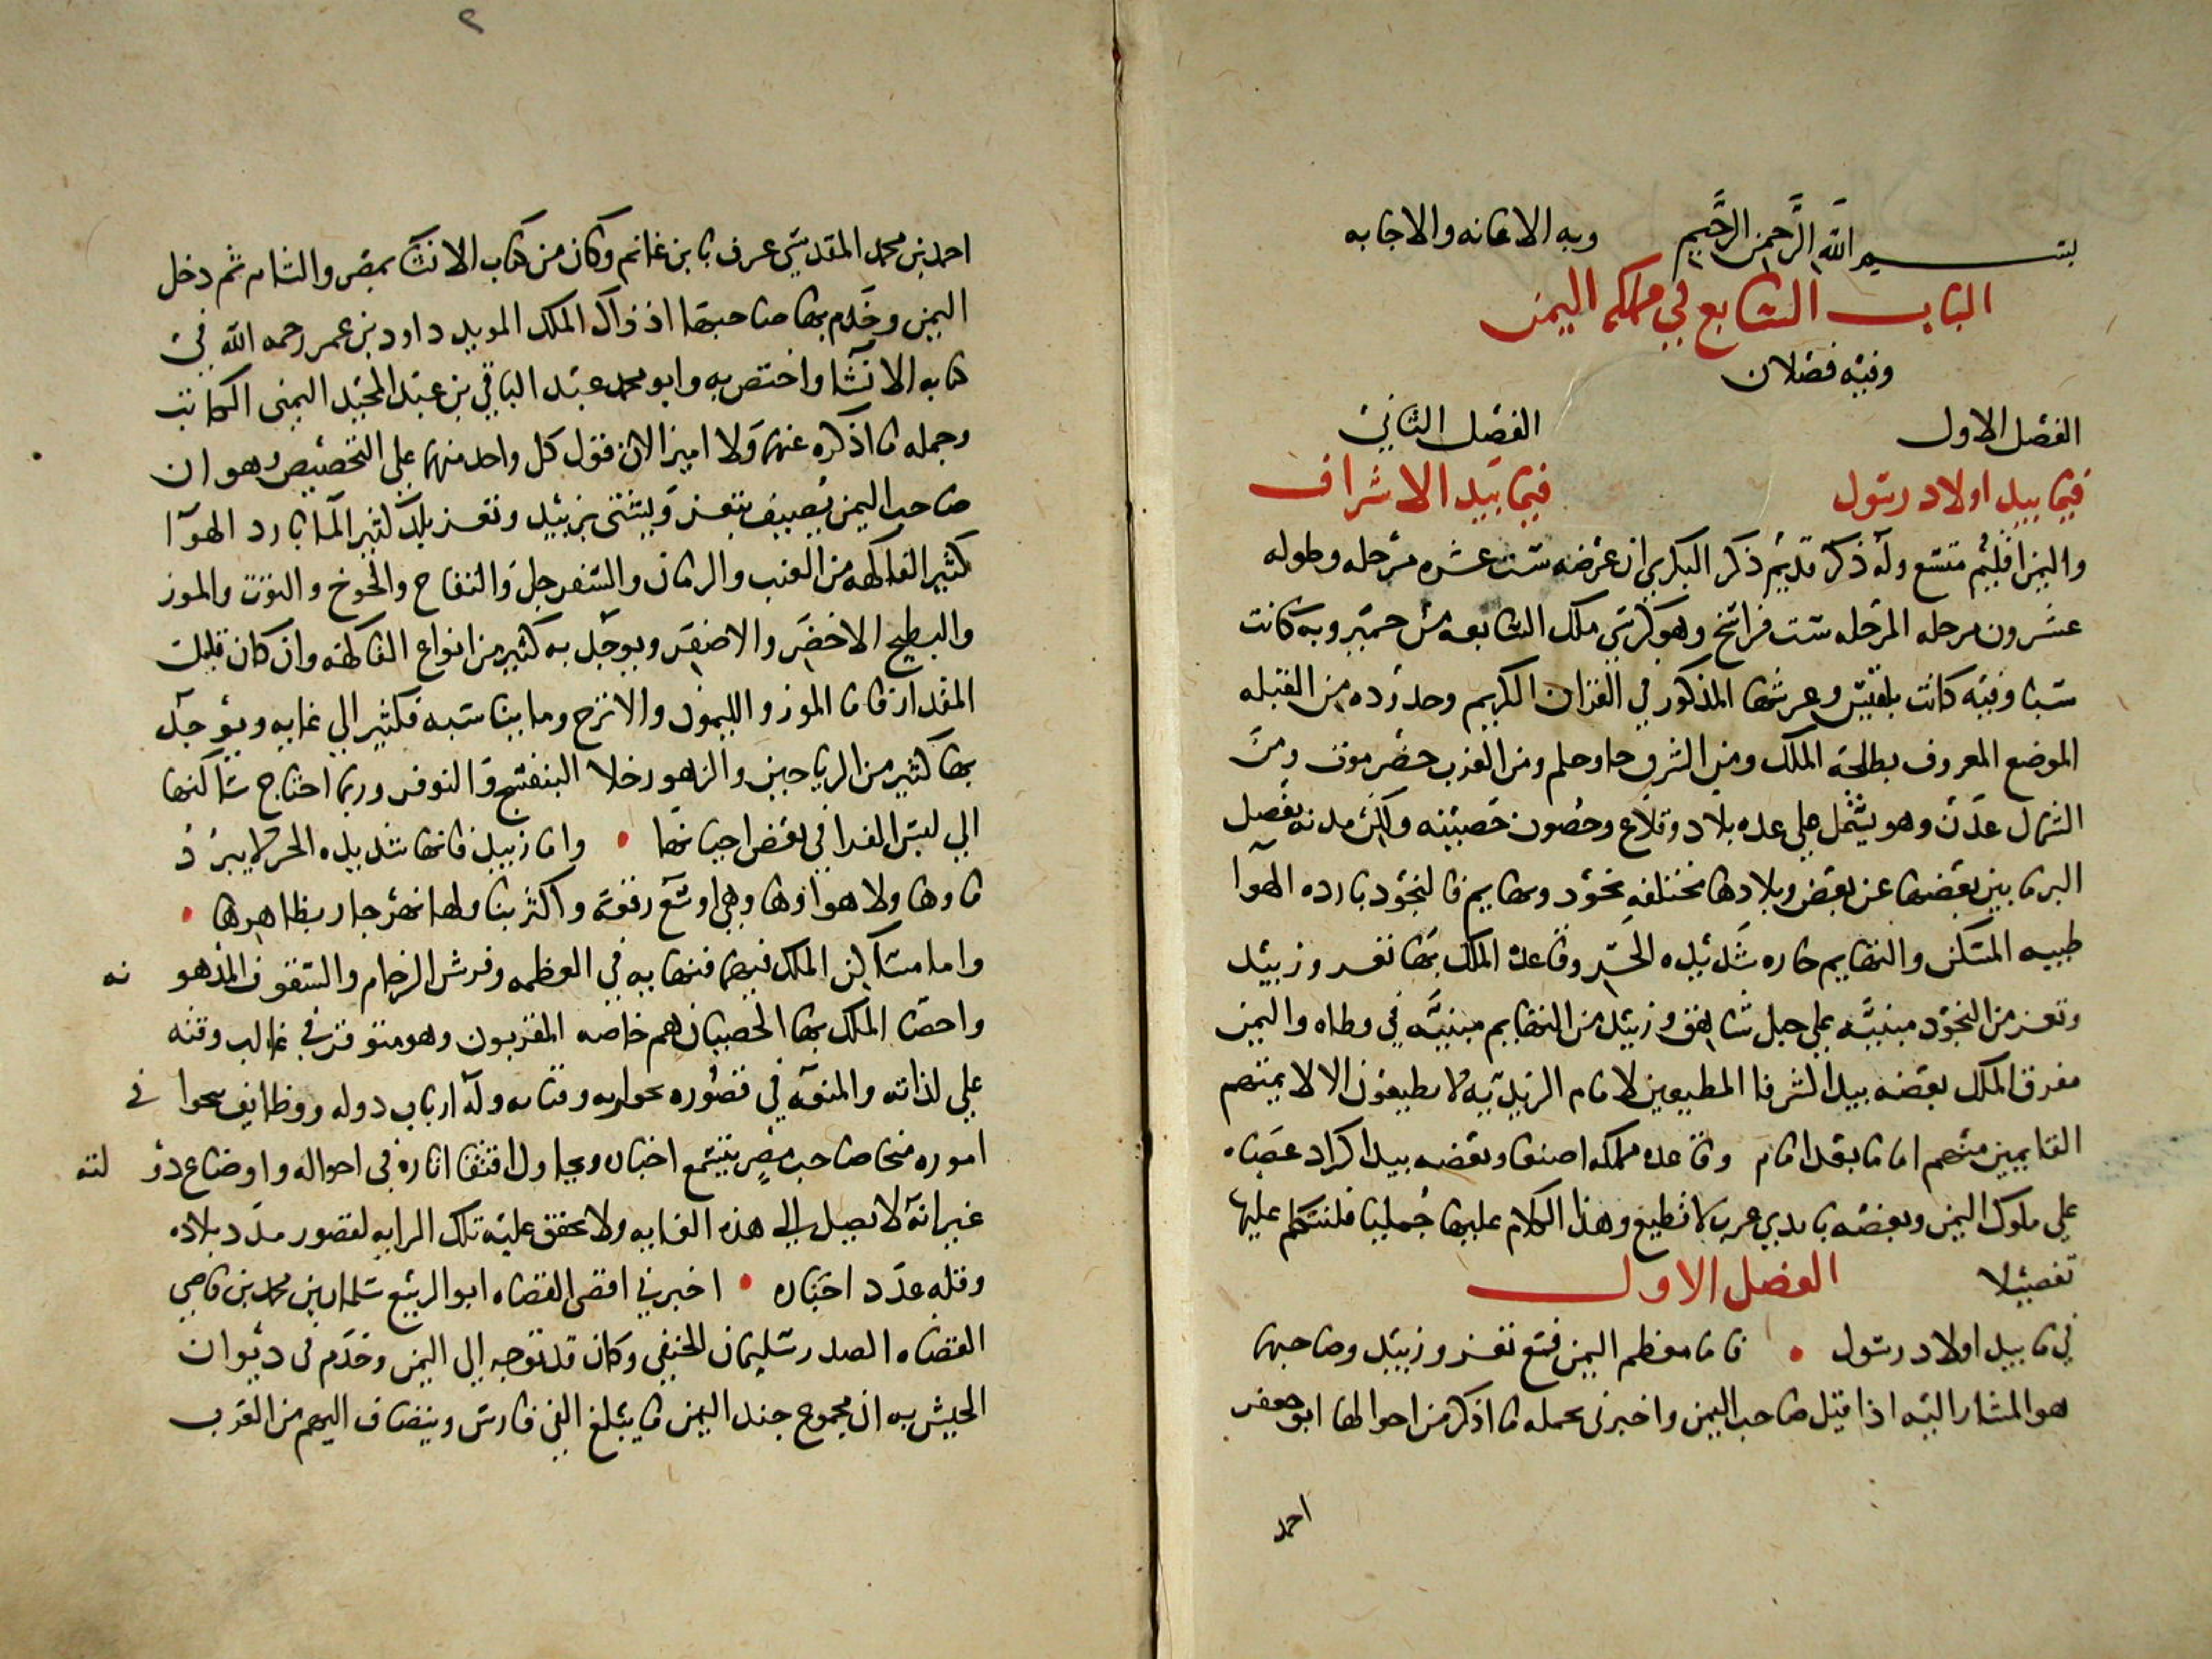 بسم الله الرحمن الرحيم وبه الاعانه والاجابه
الباب السابع في مملكه اليمن
وفيه فصلان
الفصل الاول الفصل الثاني
فيما بيد اولاد رسول فيما بيد الاشراف
واليمن اقليم متسع وله ذكر قديم ذكر البكري ان عرضه ست عشره مرحله وطوله
عشرون مرحله المرحله ست فراسخ وهو كرسي ملك التبابعه من حمير وبه كانت
سبا وفيه كانت بلقيس وعرشها المذكور في القران الكريم وحدوده من القبله
الموضع المعروف بطلحة الملك ومن الشرق حاوحلم ومن الغرب حضرموت ومن
الشمال عدن وهو يشتمل على عده بلاد وقلاع وحصون حصينه ولكن مدنه يفصل
البر ما بين بعضها عن بعض وبلادها مختلفه نجود وتهايم فالنجود بارده الهوا
طيبه المسكن والتهايم حاره شديده الحر وقاعدة الملك بها تعز وزبيد
وتعز من النجود مبنيه على جبل شاهق وزبيد من التهايم مبنيه في وطاه واليمن
مفرق الملك بعضه بيد الشرفا المطيعين لامام الزيديه لا يطيعون الا لايمتهم
القايمين منهم اماما بعد امام وقاعده مملكه اصنعا وبعضه بيد اكراد عصاه
على ملوك اليمن وبعضه بايدي عرب لا تطيع وهذا الكلام عليها جمليا فلنتكلم عليها
تفصيلا الفصل الاول
في ما بيد اولاد رسول • فاما معظم اليمن فمع تعز وزبيد وصاحبها
هو المشار اليه اذا قيل صاحب اليمن واخبرني بجمله ما اذكر من احوالها ابو جعفر
احمد
احمد بن محمد المقدسي عرف بابن غانم وكان من كتاب الانشا بمصر والشام ثم دخل
اليمن وخدم بها صاحبها اذ ذاك الملك المويد داود بن عمر رحمه الله في
كتابه الانشا واختص به وابو محمد عبد الباقي بن عبد المجيد اليمني الكاتب
وجمله ما اذكره عنهما ولا اميز الان قول كل واحد منهما على التخصيص وهو ان
صاحب اليمن يصيف بتعز ويشتي بزبيد وتعز بلد كثير الما بارد الهوا
كثير الفاكهه من العنب والرمان والسفرجل والتفاح والخوخ والتوت والموز
والبطيح الاخضر والاصفر ويوجد به كثير من انواع الفاكهه وان كان قليلت
المقدار فاما الموز والليمون والاترج وما يناسبه فكثير الي غايه ويوجد
بها كثير من الرياحين والزهور خلا البنفسج والنوفر وربما احتاج ساكنها
الي لبس الفرا في بعض احيانها • واما زبيد فانها شديده الحر لا يبرد
ماوها ولا هواوها وهي اوسع رقعة واكثر بنا ولها نهر جار بظاهرها •
واما مساكن الملك فيهما فنهايه في العظمه وفرش الرخام والسقوف المذهو نه
واخصا الملك بها الخصيان هم خاصه المقربون وهو متوفر في غالب وقته
علي لذاته والمنوه في قصوره بجواريه وقيناته وله ارباب دوله ووظايف ينحوا في
اموره منحا صاحب مصر يتسمع اخباره ويحاول اقتفا اثاره في احواله واوضاع دو لته
غير انه لا يصل الى هذه الغايه ولا تخفق عليه تلك الرايه لقصور مدد بلاده
وقله عدد اجناده • اخبرني اقضى القضاه ابو الربيع سلمان بن محمد بن قاضي
القضاه الصدر سليمان الحنفي وكان قد توجه الى اليمن وخدم في ديوان
الجيش به ان مجموع جند اليمن ما يبلغ الفي فارس وينضاف اليهم من العرب